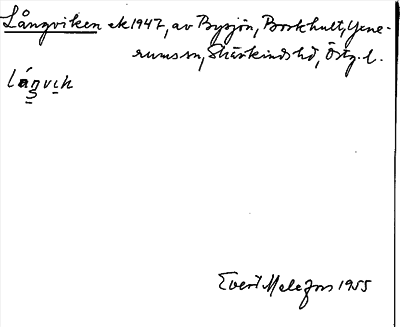 Långviken ek 1947, av Bysjön, Borkhult, Yxne-
rums sn, Skärkinds hd, Östg. l.
lángvik
Evert Melefors 1955